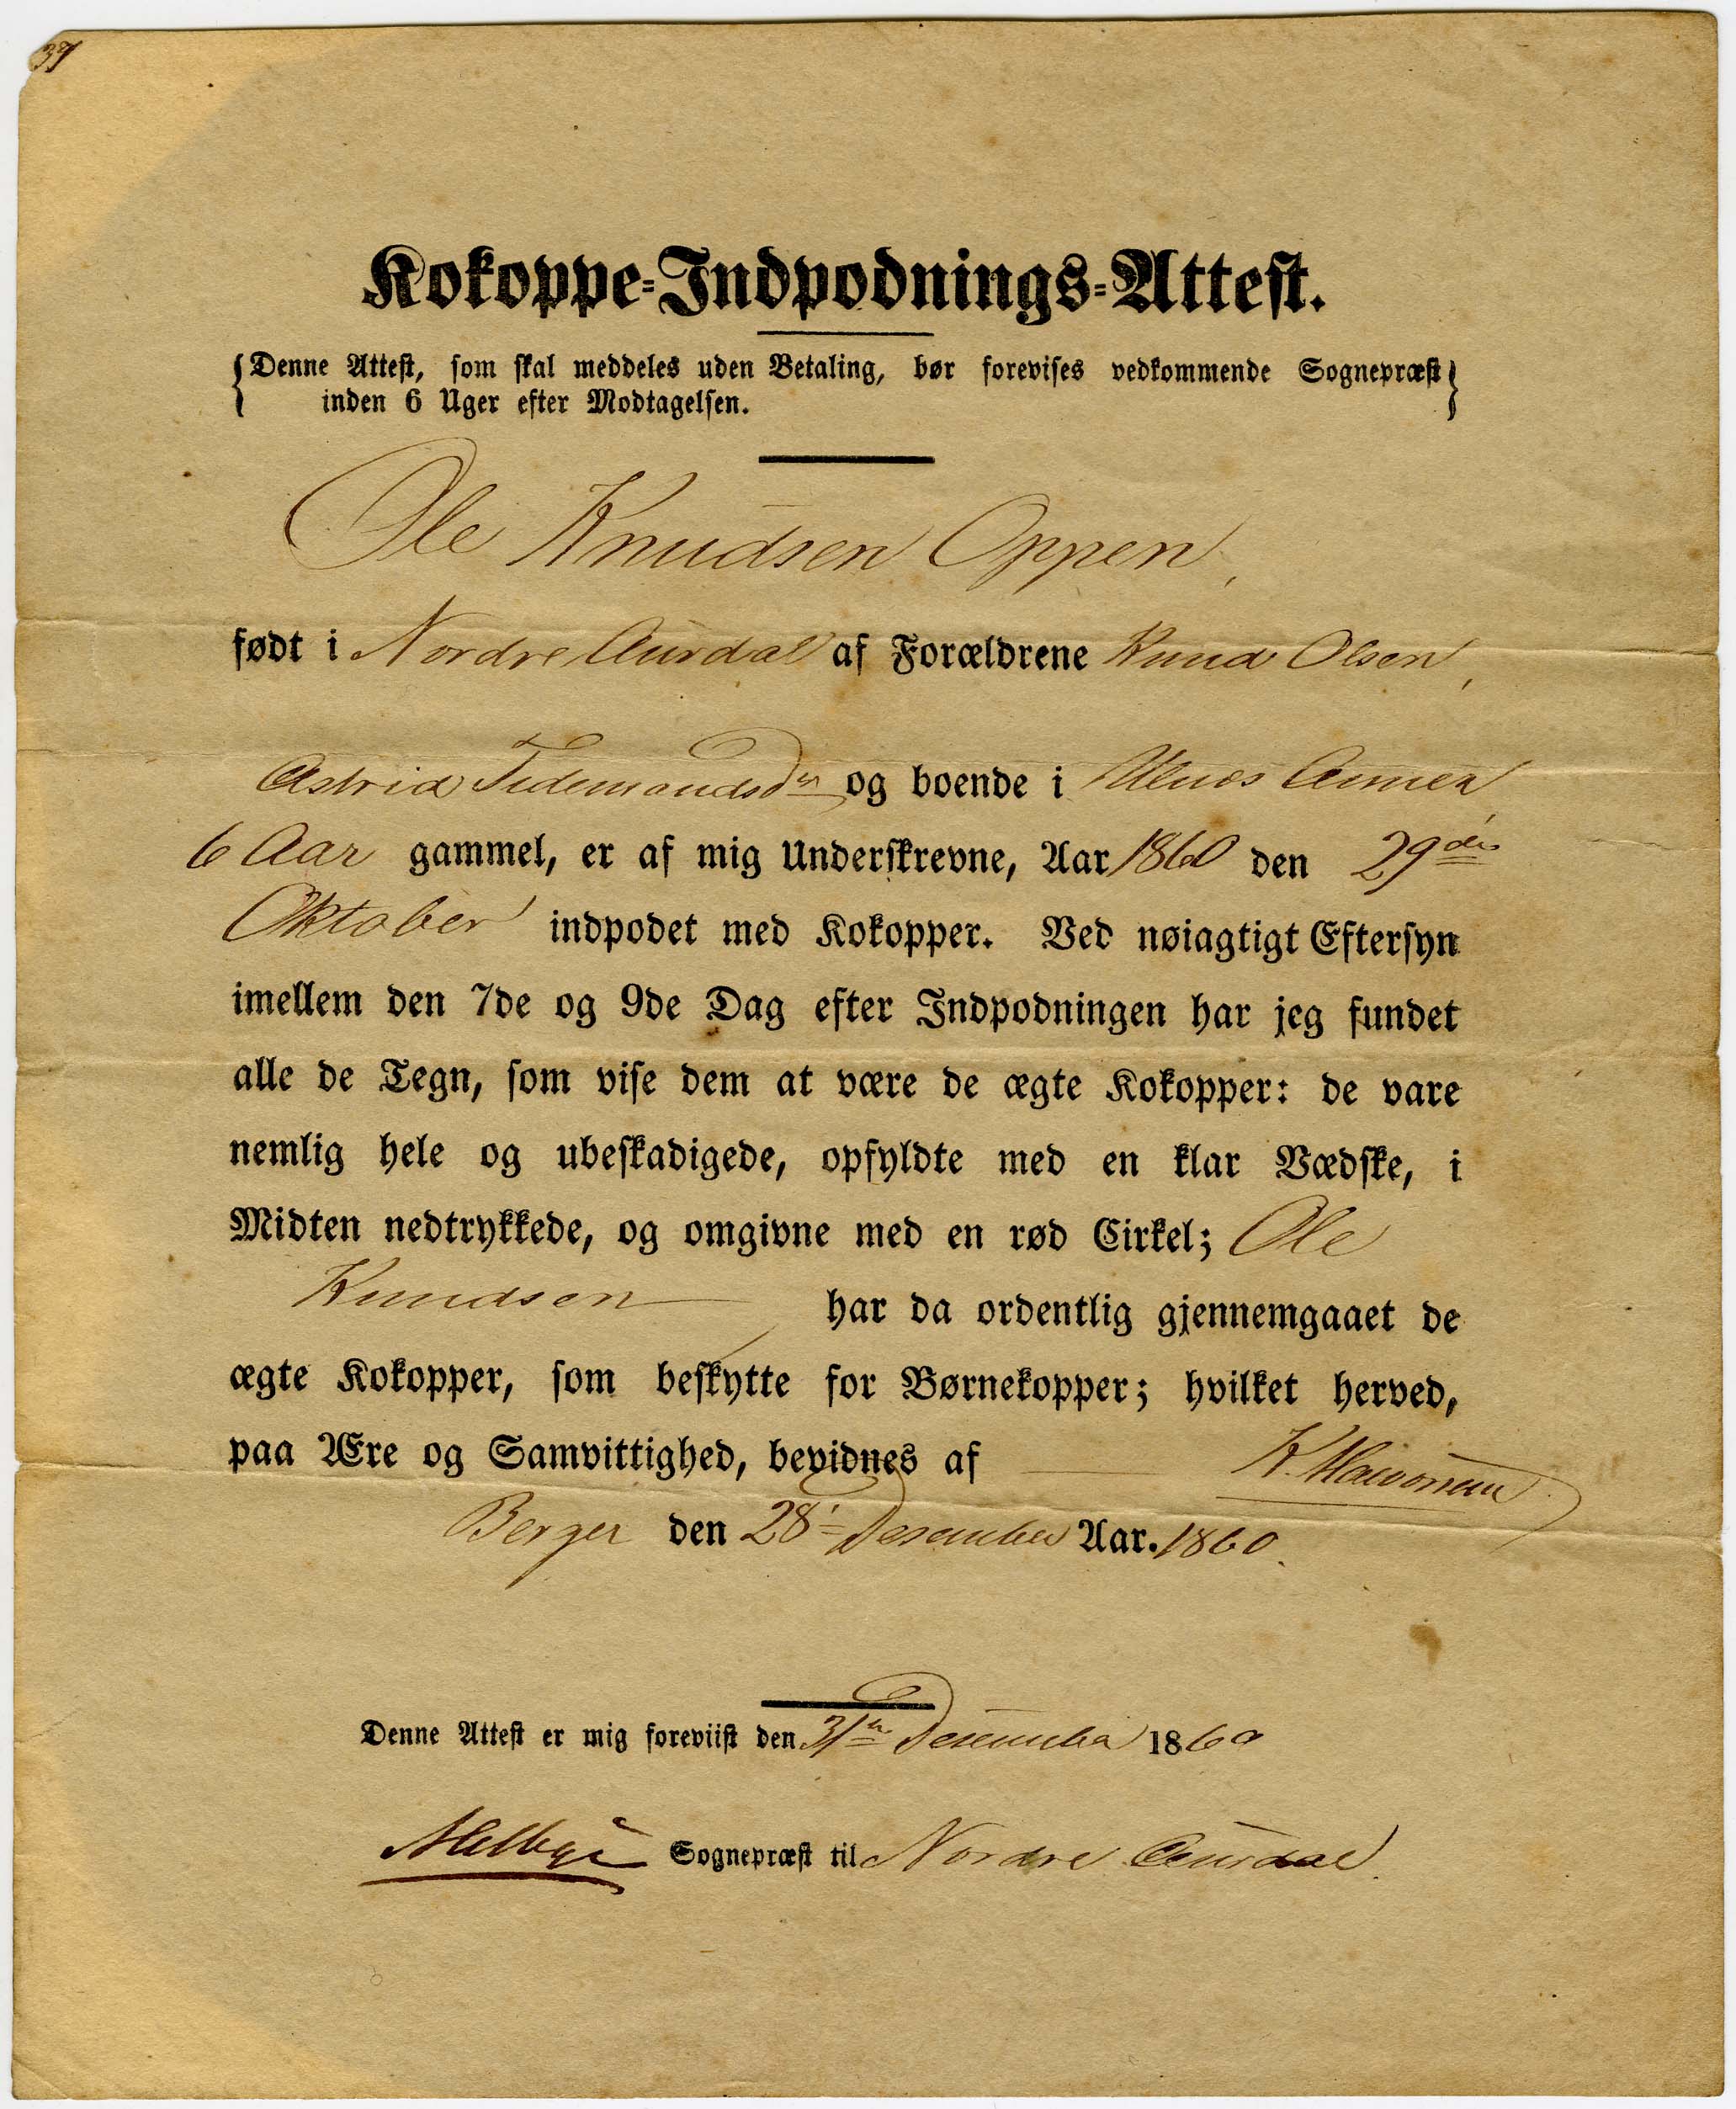 37
Kokoppe-Indpodnings-Attest.
Denne Attest, som skal meddeles uden Betaling, bør forevises vedkommende Sognepræst
inden 6 Uger efter Modtagelsen.
Ole Knudsen Oppen,
født i Nordre Aurdal af Forældrene Knud Olsen,
Astrid Tidemandsdr og boende i Ulnæs Annex,
6 Aar gammel, er af mig Underskrevne, Aar 1860 den 29de
Oktober indpodet med Kokopper. Ved nøiagtigt Eftersyn
imellem den 7de og 9de Dag efter Indpodningen har jeg fundet
alle de Tegn, som vise dem at være de ægte Kokopper: de vare
nemlig hele og ubeskadigede, opfyldte med en klar Vædske, i
Midten nedtrykkede, og omgivne med en rød Cirkel; Ole
Knudsen har da ordentlig gjennemgaaet de
ægte Kokopper, som beskytte for Børnekopper; hvilket herved,
paa Ære og Samvittighed, bevidnes af K.
Berger den 28 Desember Aar. 1860.
Denne Attest er mig foreviist den 31te Desember 1860
Melbye Sognepræst til Nordre Aurdal.